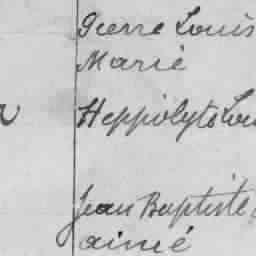 Pierre Louis
Marié
Heppolyte Lou
Jean Baptiste
ainié